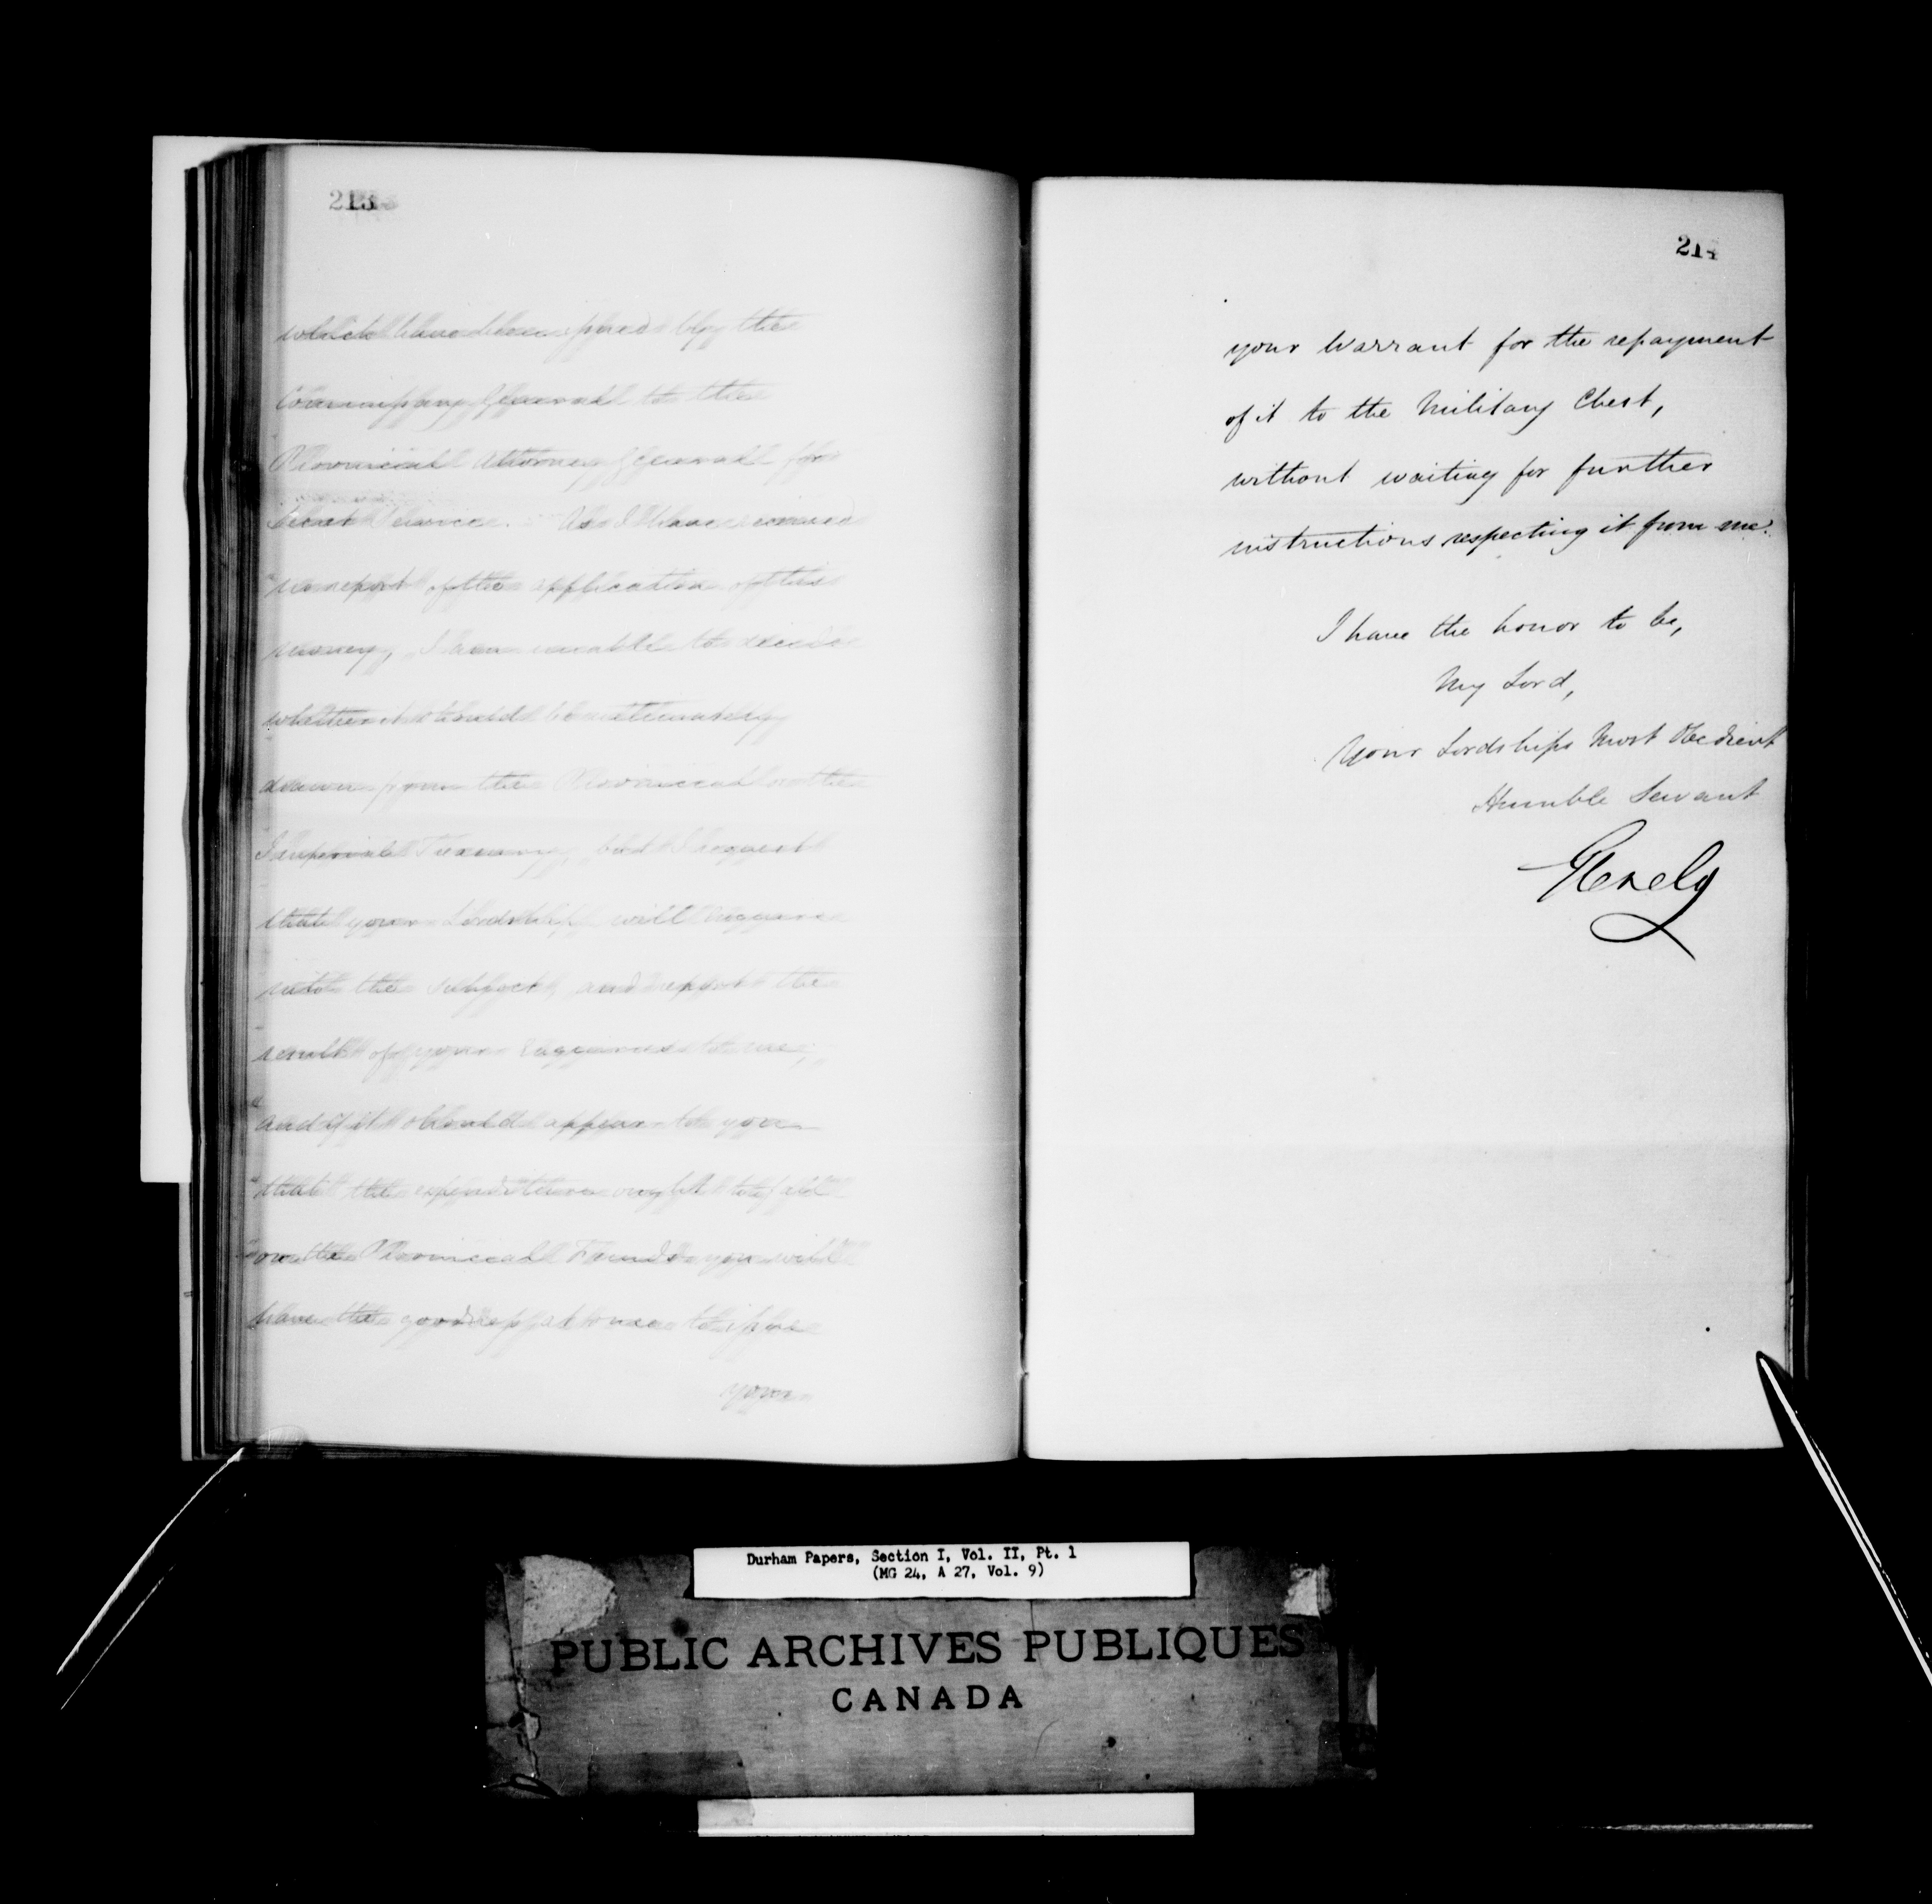 213
which have been paid by the
Commissary General to the
Provincial Attorney General for
Secret Service. As I have received
no report of the application of this
money, I am unable to decide
whether it should be ultimately
drawn from the Provincial or the
Imperial Treasury, but I request
that your Lordship will inquire
into the subject, and report the
result of your inquiries to me;
and if it should appear to you
that the expenditure ought to fall
on the Provincial Funds you will
have the goodness at once to issue
your
214
your Warrant for the repayment
of it to the Military Chest,
without waiting for further
instructions respecting it from me.
I have the honor to be,
My Lord,
Your Lordships Most Obedient
Humble Servant
Glenelg
Durham Papers, Section I, Vol. II, Pt. 1
(MG 24, A 27, Vol. 9)
PUBLIC ARCHIVES PUBLIQUES
CANADA